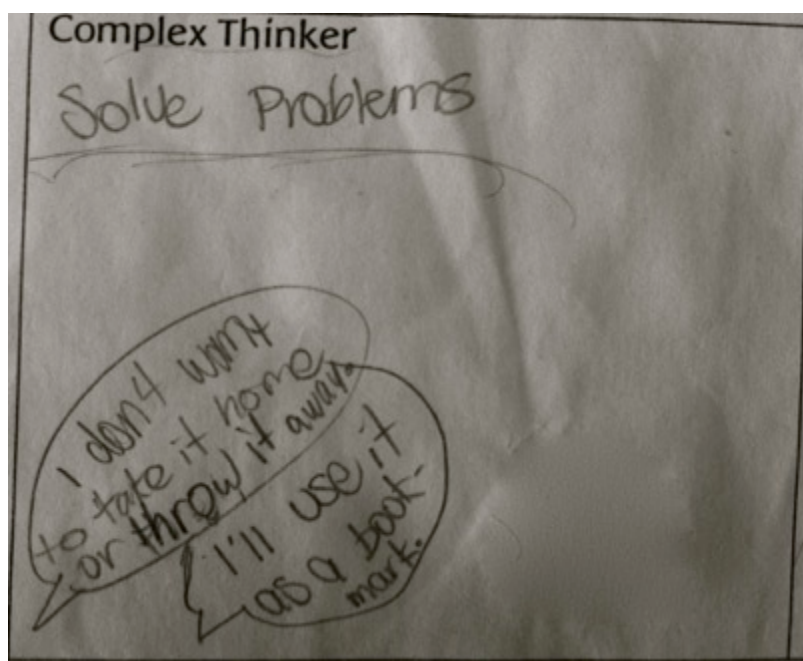 Complex Thinker
Solve Problems
I don't want
to take it home
or throw it away.
I'll use it
as a book-
mark.